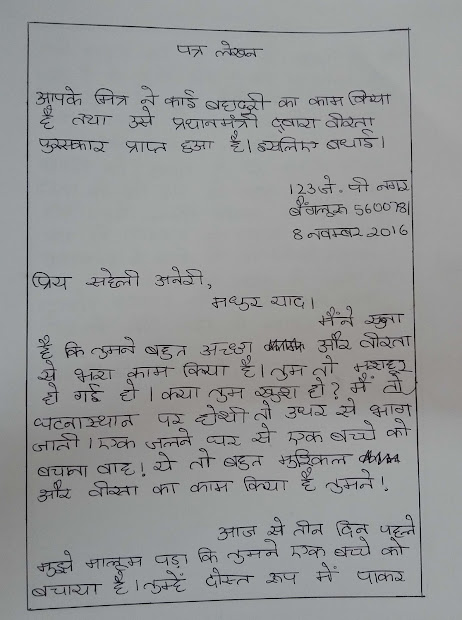 पत्र लेखन
आपके मित्र ने कोई बहादुरी का काम किया
है तथा उसे प्रधानमंत्री द्वारा वीरता
पुरस्कार प्राप्त हुआ है। इसलिए बधाई।
123 जे. पी नगर
बैंगलुरू 560078
8 नवम्बर 2016
प्रिय सहेली अनेरी,
मधुर याद।
मैंने सुना
है कि तुमने बहुत अच्छा और वीरता
से भरा काम किया है। तुम तो मशहूर
हो गई हो। क्या तुम खुश हो? मैं तो
घटनास्थान पर होथी तो उधर से भाग
जाती। एक जलने घर से एक बच्चे को
बचाना वाह! ये तो बहुत मुश्किल
और वीरता का काम किया है तुमने!
आज से तीन दिन पहले
मुझे मालूम पड़ा कि तुमने एक बच्चे को
बचाया है। तुम्हें दोस्त रूप में पाकर